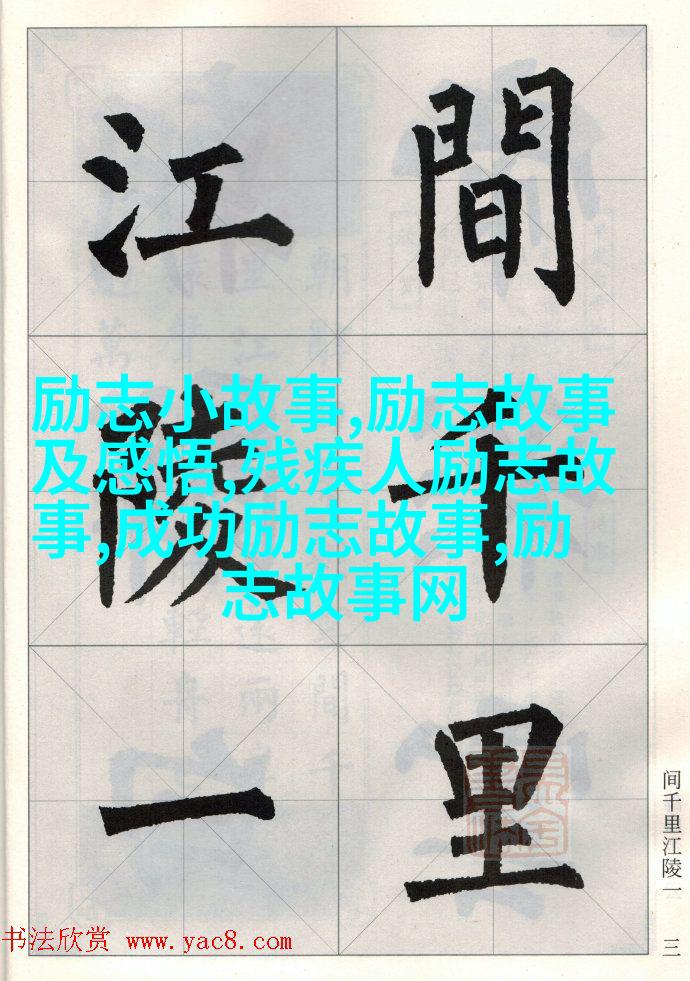 間千里
江陵一
励志小故事,励志故事
及感悟,残疾人励志故
事,成功励志故事,励
志故事网
间千里江陵一
三
书法欣赏 www.yac8.com